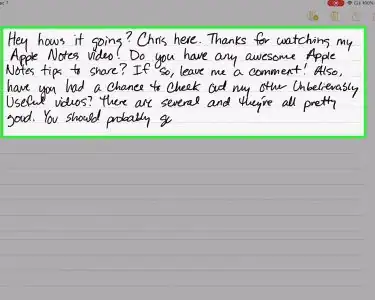 Hey hows it going? Chris here. Thanks for watching my
Apple Notes video! Do you have any awesome Apple
Notes tips to share? If so, leave me a comment! Also,
have you had a chance to check out my other Unbelievably
Useful videos? There are several and they're all pretty
good. You should probably go
100%